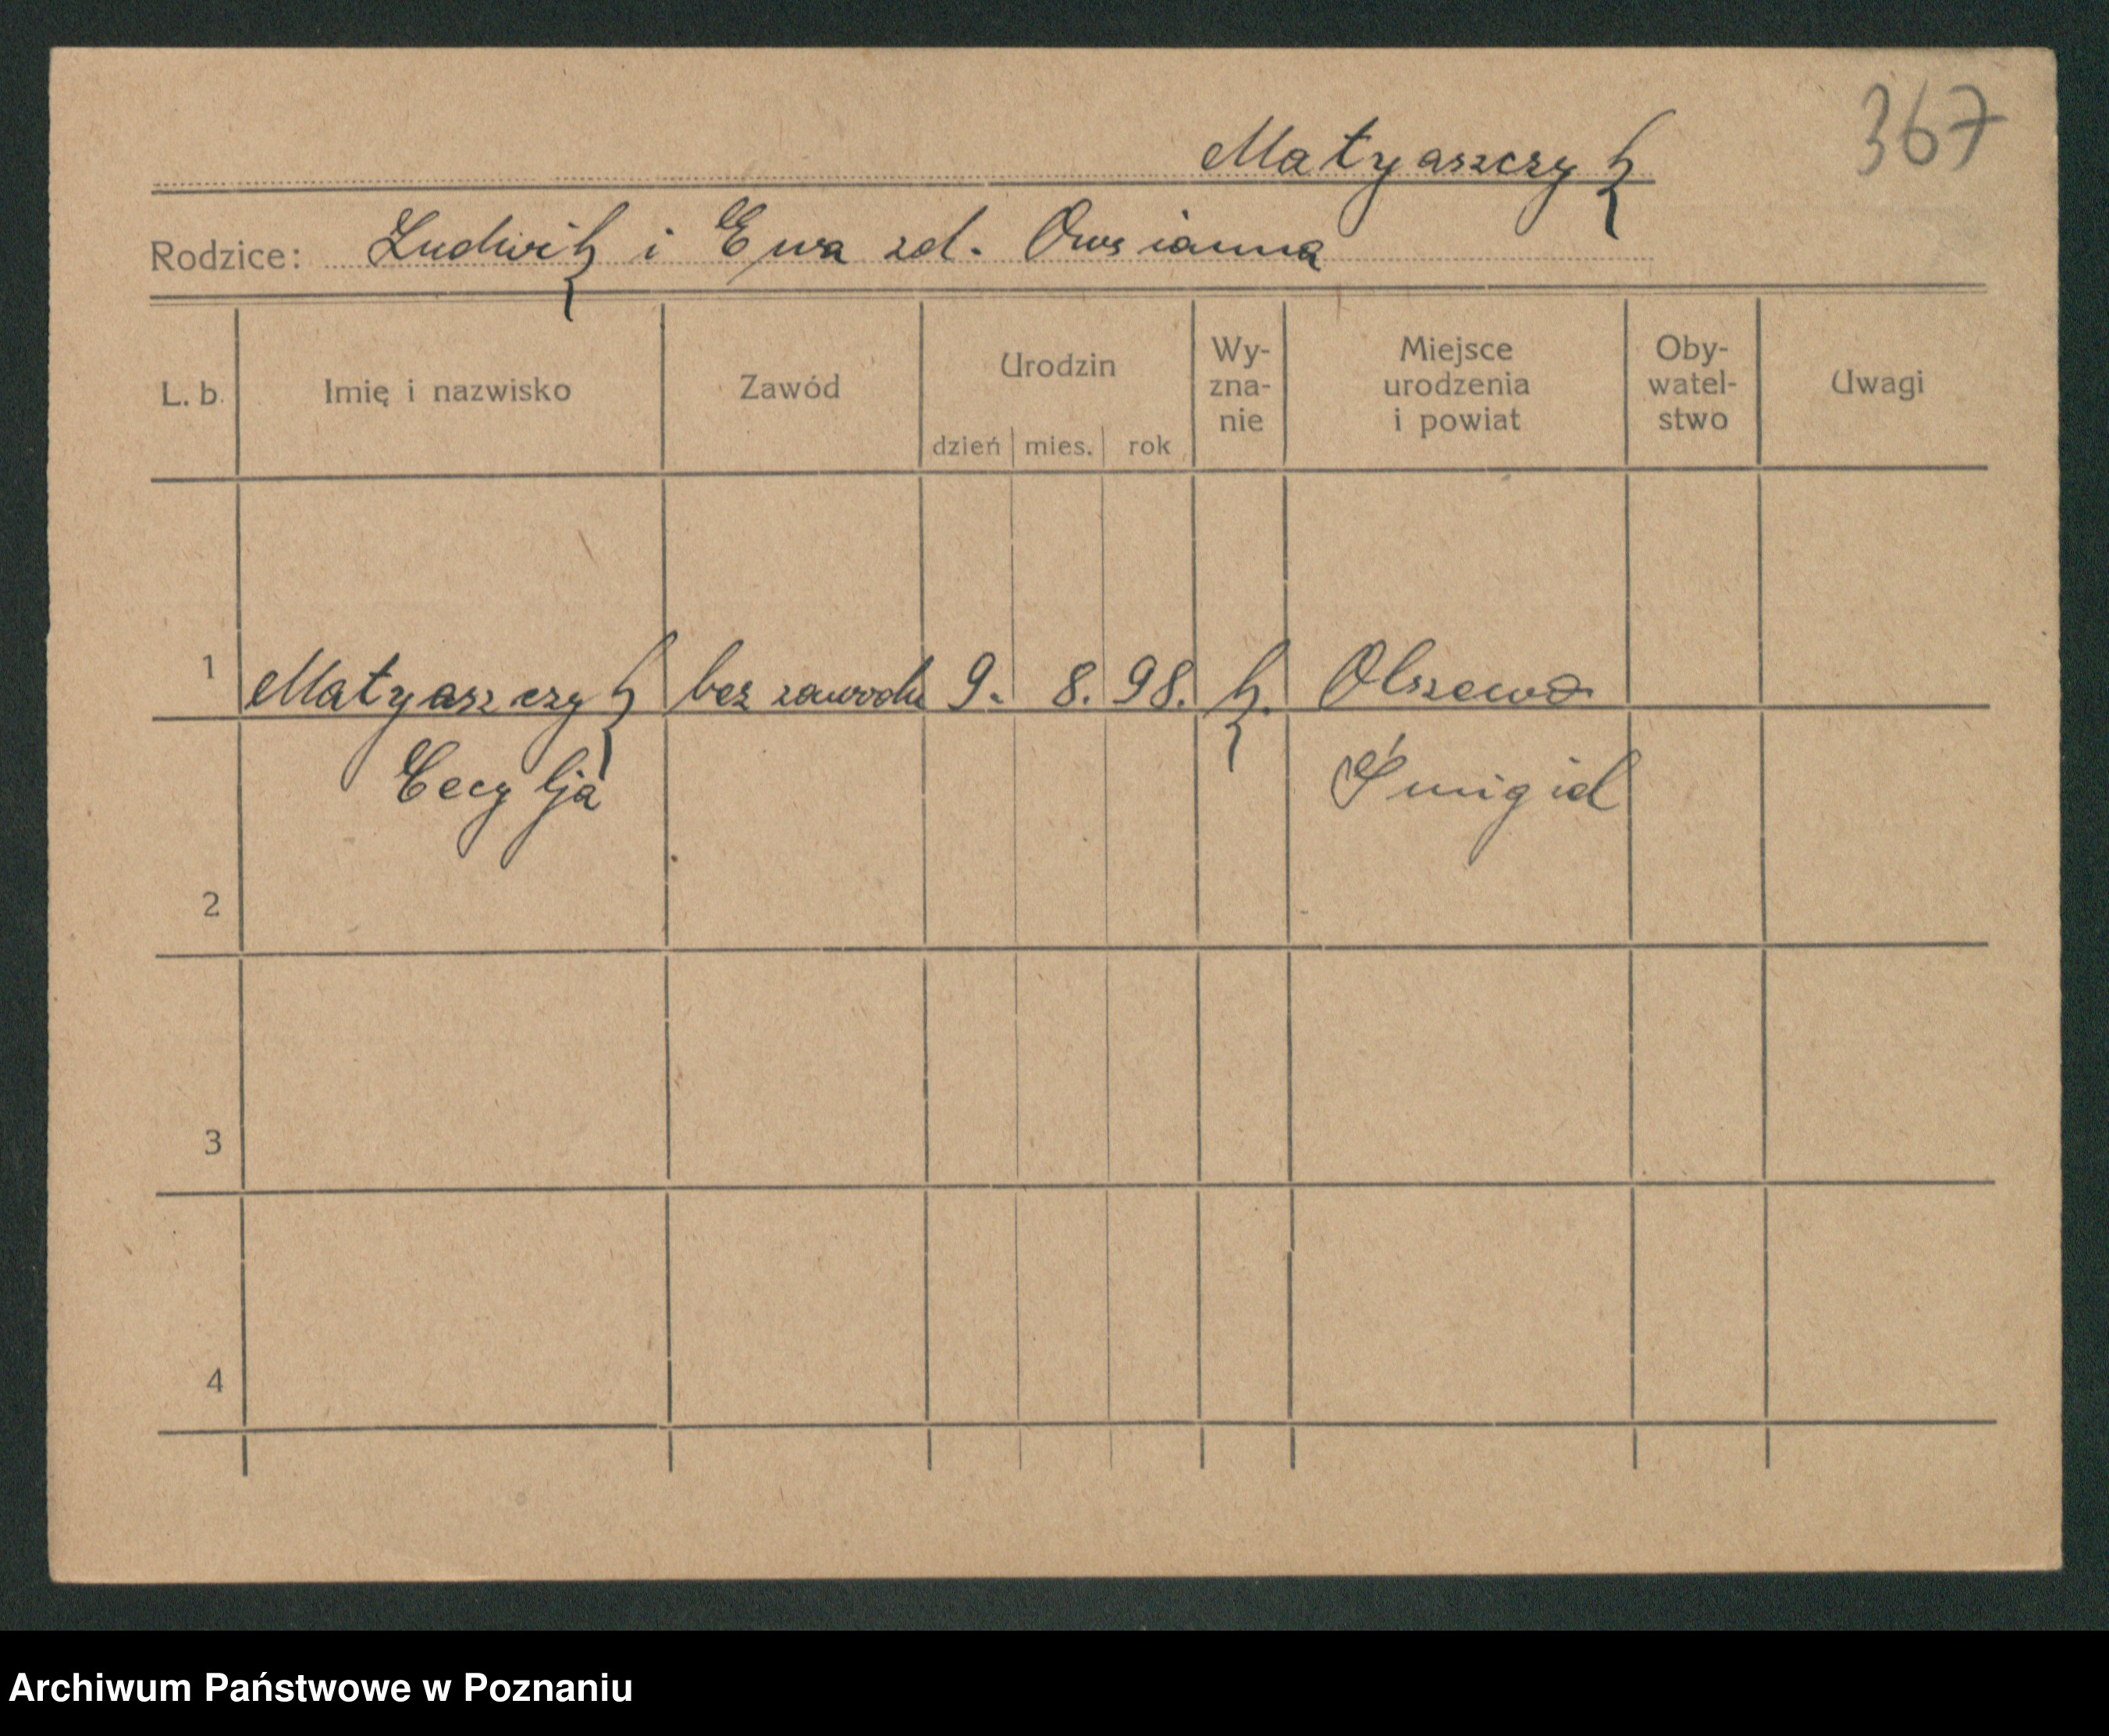 367
Matyaszczyk
Rodzice: Ludwik i Ewa zd. Owsianna
L. b. Imię i nazwisko Zawód Urodzin dzień mies. rok Wy-zna-nie Miejsce urodzenia i powiat Oby-watel-stwo Uwagi
1 Matyaszczyk bez zawodu 9. 8. 98. k. Olszewo
Cecylja Śmigiel
2
3
4
Archiwum Państwowe w Poznaniu